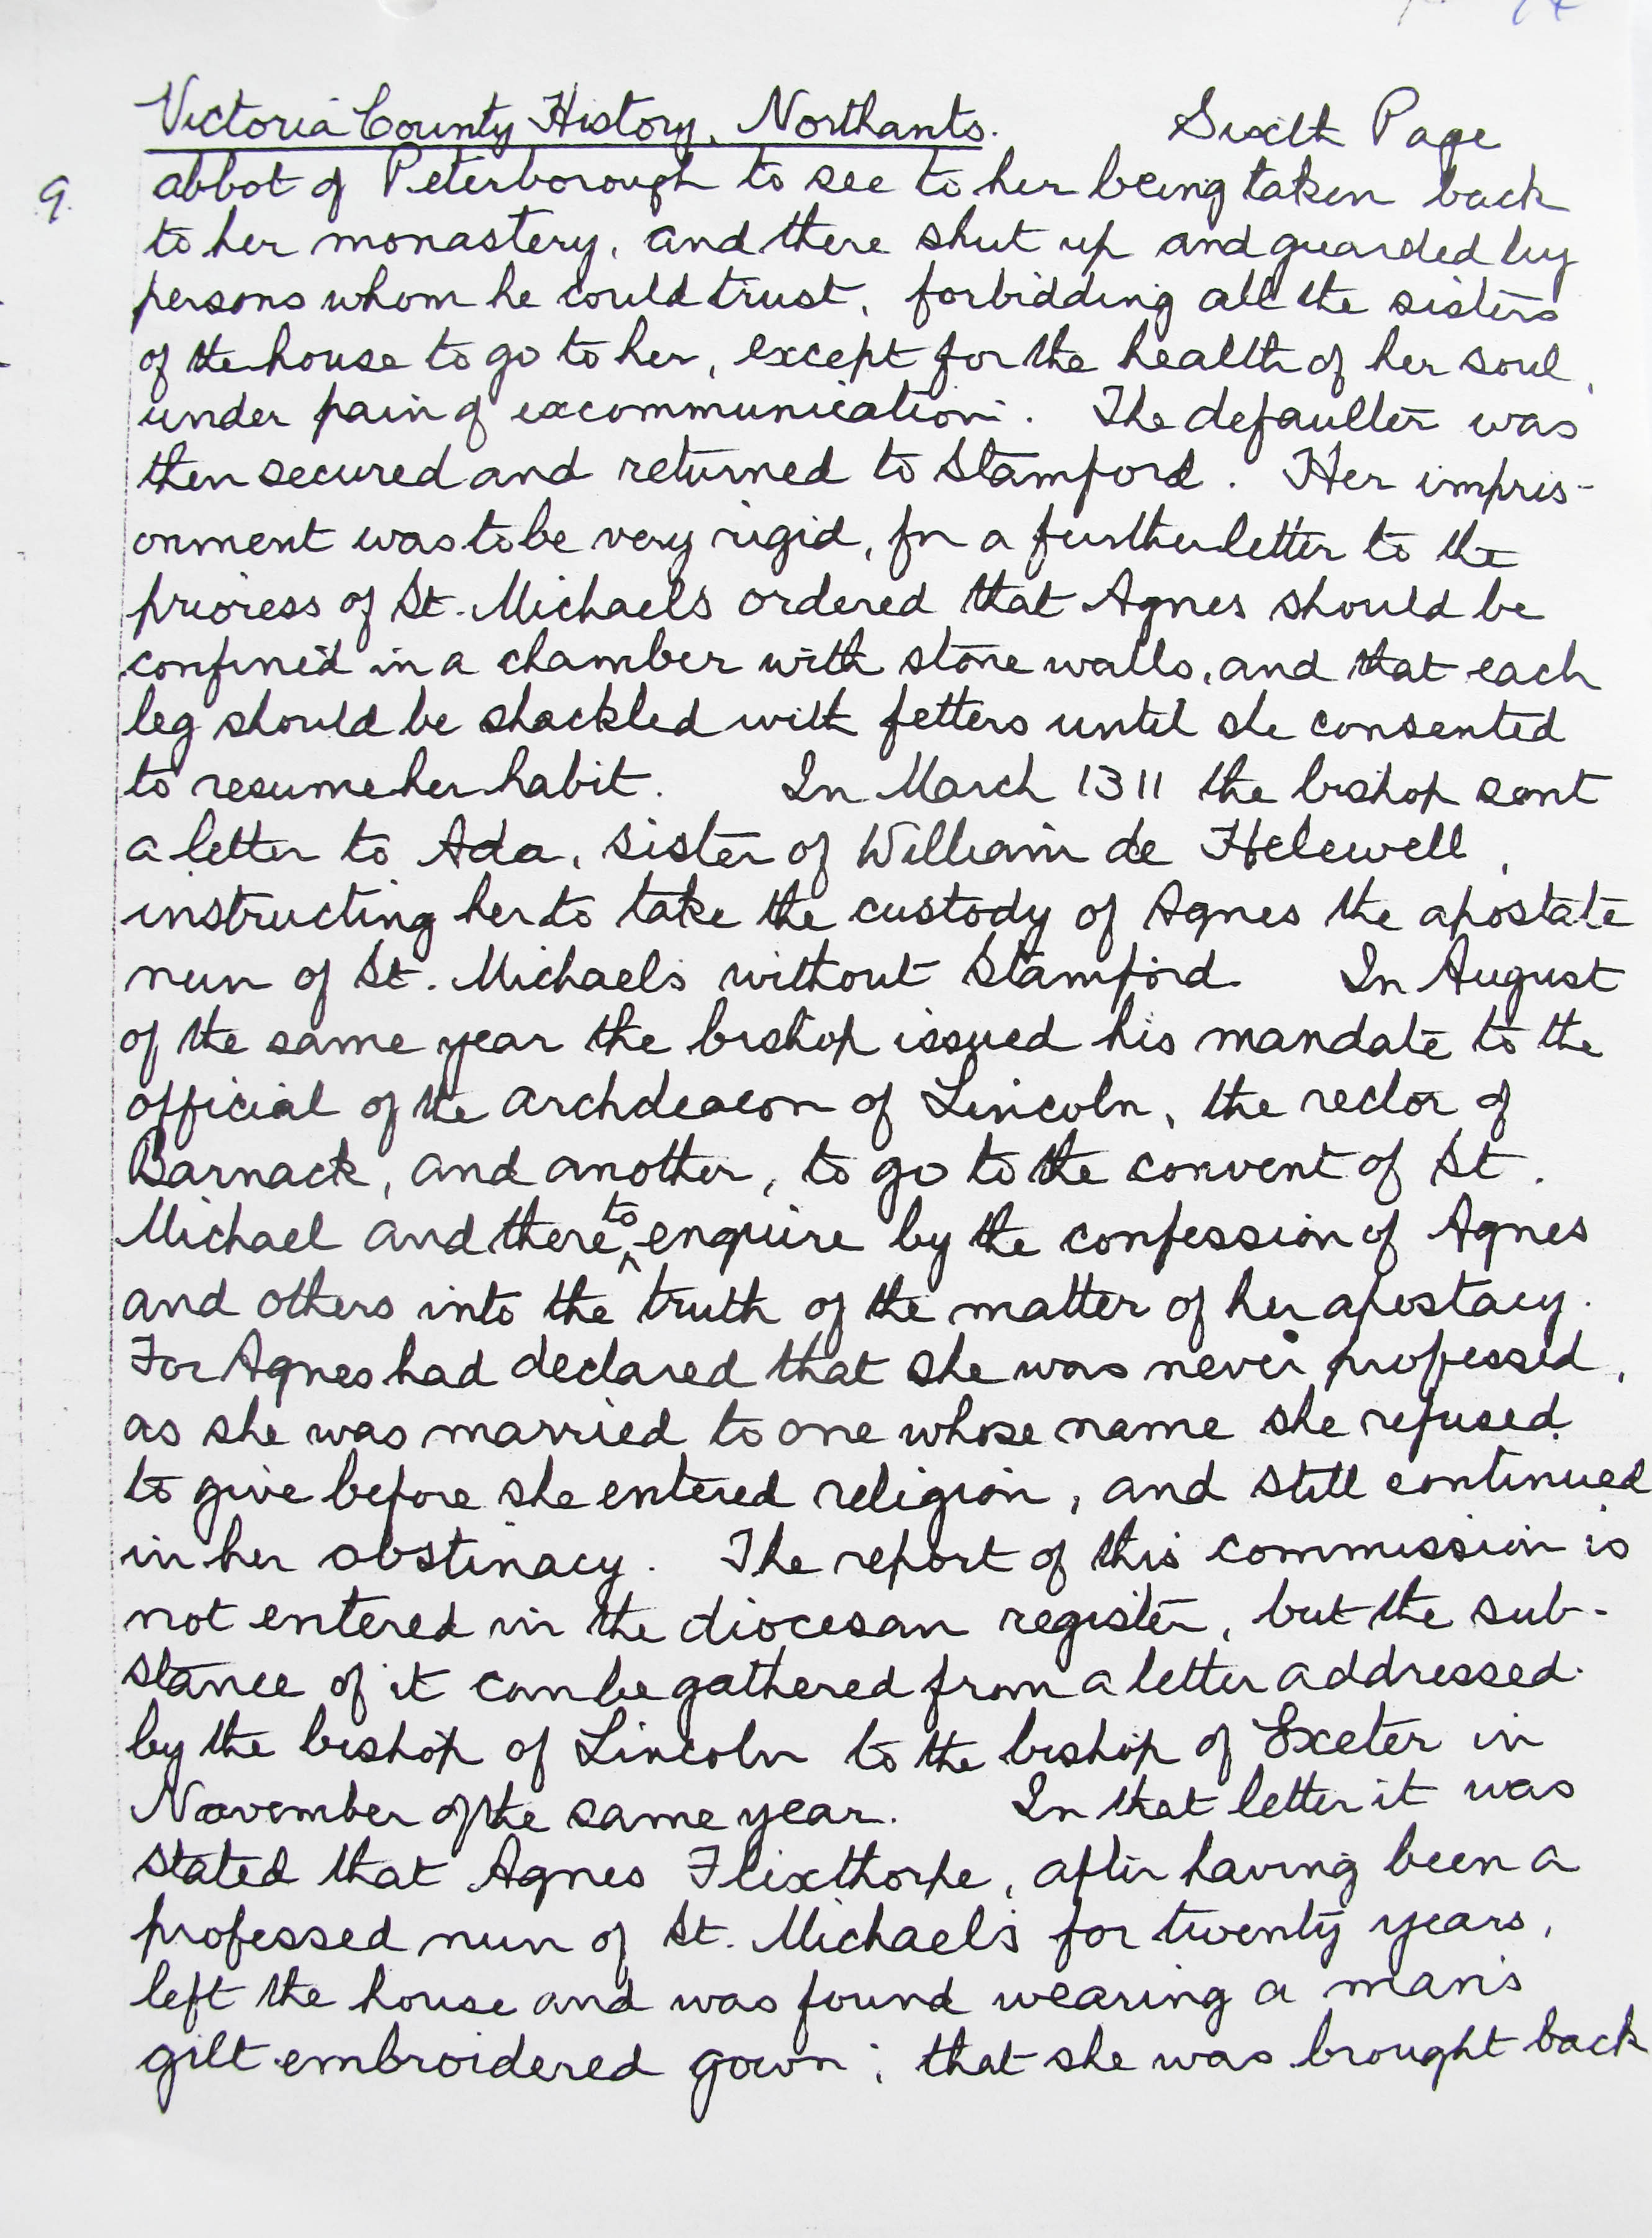 Victoria County History, Northants. Sixth Page
9. abbot of Peterborough to see to her being taken back
to her monastery, and there shut up and guarded by
persons whom he could trust, forbidding all the sisters
of the house to go to her, except for the health of her soul,
under pain of excommunication. The defaulter was
then secured and returned to Stamford. Her impris-
onment was to be very rigid, for a further letter to the
prioress of St. Michaels ordered that Agnes should be
confined in a chamber with stone walls, and that each
leg should be shackled with fetters until she consented
to resume her habit. In March 1311 the bishop sent
a letter to Ada, sister of William de Helewell,
instructing her to take the custody of Agnes the apostate
nun of St. Michael's without Stamford. In August
of the same year the bishop issued his mandate to the
official of the archdeacon of Lincoln, the rector of
Barnack, and another, to go to the convent of St.
Michael and there to enquire by the confession of Agnes
and others into the truth of the matter of her apostacy.
For Agnes had declared that she was never professed,
as she was married to one whose name she refused
to give before she entered religion, and still continued
in her obstinacy. The report of this commission is
not entered in the diocesan register, but the sub-
stance of it can be gathered from a letter addressed
by the bishop of Lincoln to the bishop of Exeter in
November of the same year. In that letter it was
stated that Agnes Flixthorpe, after having been a
professed nun of St. Michael's for twenty years,
left the house and was found wearing a man's
gilt embroidered gown; that she was brought back